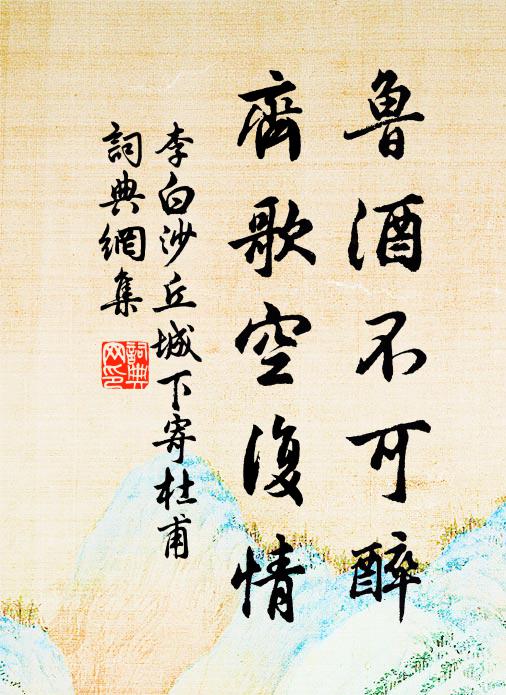 魯酒不可醉
齊歌空復情
李白沙丘城下寄杜甫
詞典網集
詞典网印